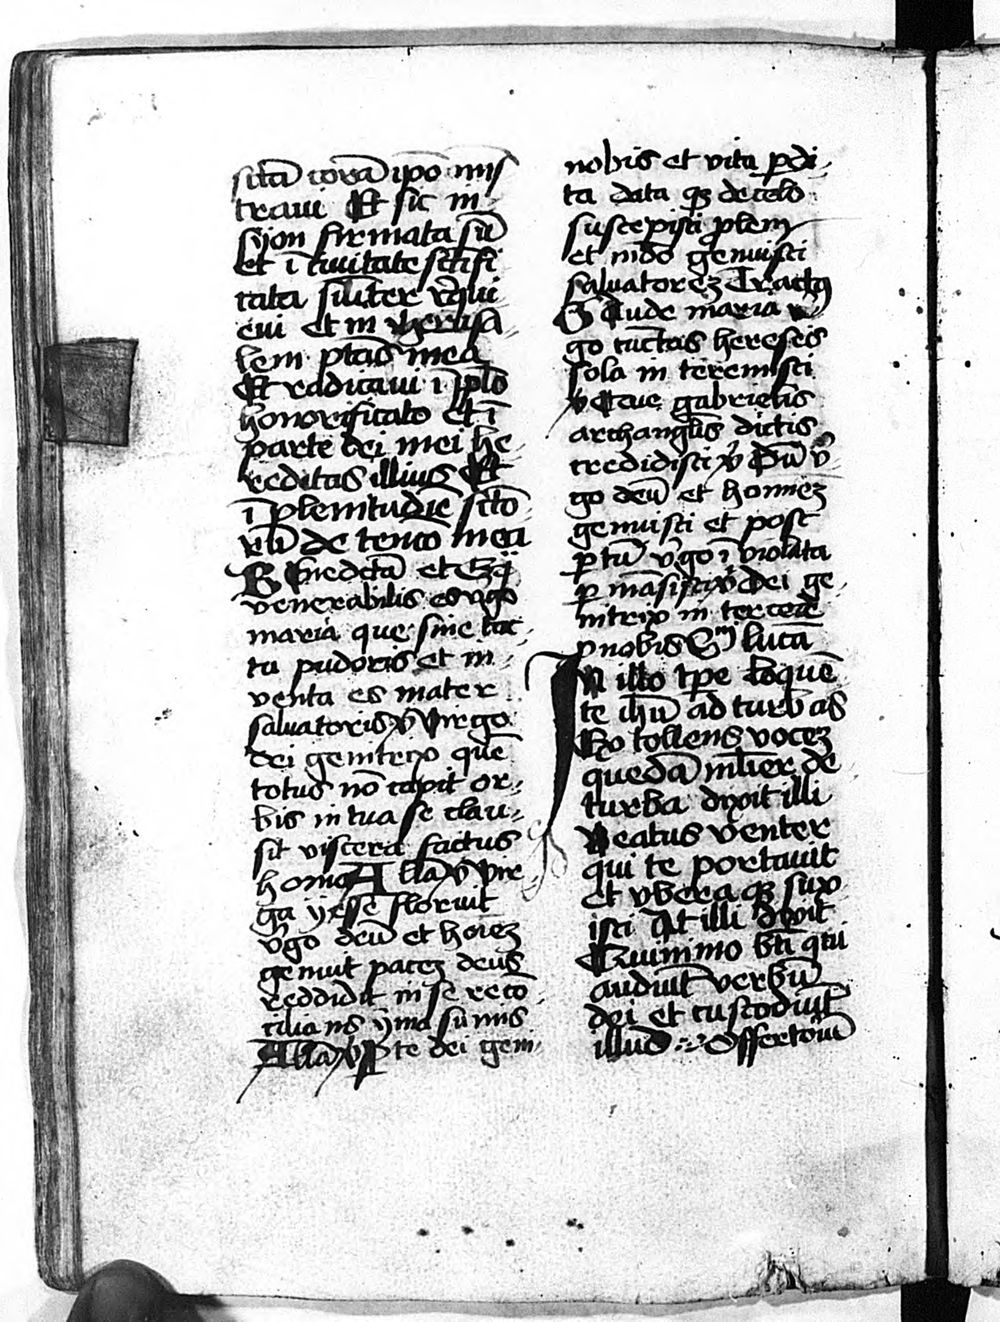 sctā corā ipō mīs
traui Et sic in
syon firmata sū
et ī ciuitate sctifi
cata silīter req̄ui
eui Et in iherusa
lem ptās mea
Et radicaui ī pplo
honorificato Et ī
parte dei mei he
reditas illius Et
ī plenitudīe scto
rū detentō mea
Benedcta et
venerabilis es v̄go
maria que sine tac
tu pudoris et in
venta es mater
saluatoris v̄ Virgo
dei genitrix quē
totus nō capit or
bis in tua se clau
sit viscera factus
homo Alla v̄ Vir
ga yesse floruit
v̄go deū et hoiēz
genuit pacez deus
reddidit in se reco
cilians yma sūmis
Alla v̄ P te dei geni
nobis et vita pdi
ta data qz de celo
suscepisti plem
et mdo genuisti
saluatorez Tractq
Gaude maria v̄
go cūctas hereseis
sola in teremisti
v̄ Que gabrielis
archangl'is dictis
credidisti v̄ Dū v̄
go deū et homiez
genuisti et post
ptū v̄go īviolata
pmāsisti v̄ Dei ge
nitrix in tercede
p nobis Sm lucā
In illo tpe loquē
te ihū ad turbas
Extollens vocez
quedā mlier de
turba dixit illi
Beatus venter
qui te portauit
et vbera qz sux
isti At illi dixit
Quinimmo bti qui
audiūt verbū
dei et custodiūt
illud Offertoiū